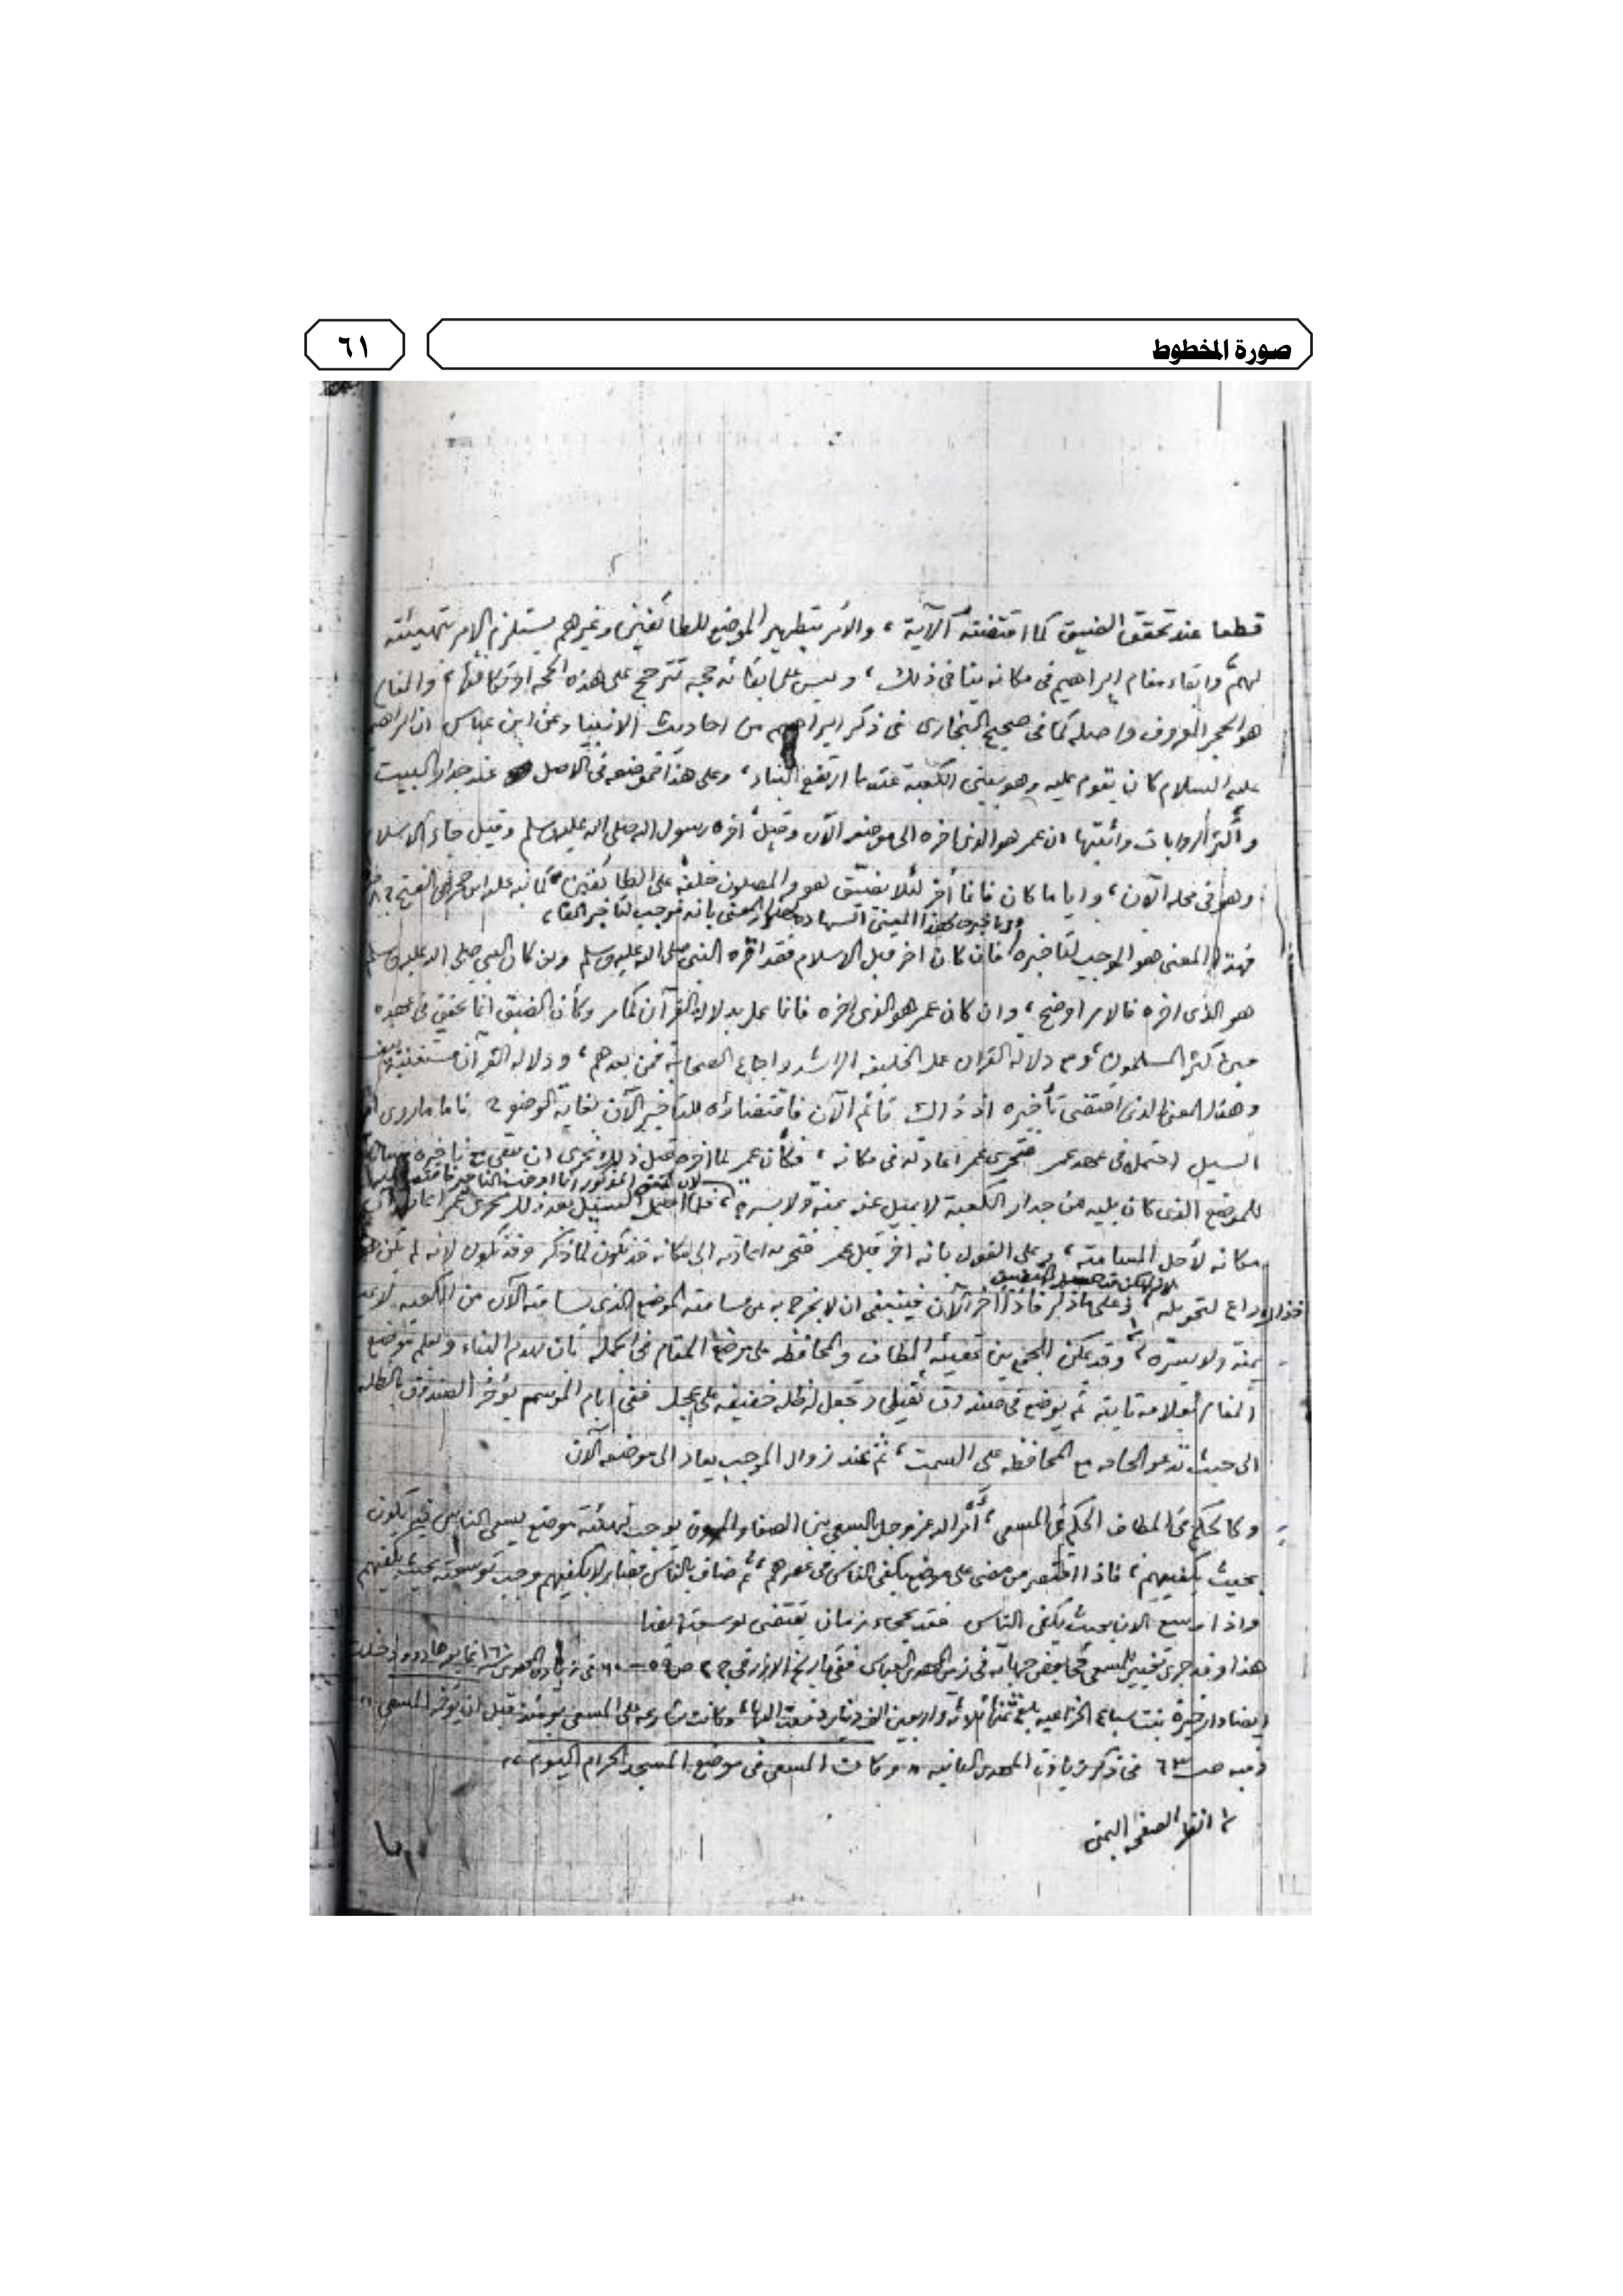 صورة المخطوط
٦١
قطعا عند تحقق الضيق كما اقتضته الآية ، والأمر بتطهير الموضع للطائفين وغيرهم يستلزم الامر بتهيئته
لهم وابقاء مقام ابراهيم في مكانه ينافي ذلك ، وليس على بقائه حجة تترجح على هذه الحجة او تكافئها ، والمقام
هو الحجر المعروف واصله كما في صحيح البخاري في ذكر ابراهيم من احاديث الانبياء وعن ابن عباس ان ابراهيم
عليه السلام كان يقوم عليه وهو يبني الكعبة عندما ارتفع البناء ، وعلى هذا فموضعه في الأصل عند جدار البيت
وأكثر الروايات وأثبتها ان عمر هو الذي اخره الى موضعه الآن وقيل أخره رسول الله صلى الله عليه وسلم وقيل جاء الاسلام
وهو في محله الآن ، وايا ما كان فانما أخر لئلا يضيق هو والمصلون خلفه على الطائفين كما نبه عليه ابن حجر في الفتح ج ٨
بانه موجب لتأخير المقام
فهذا المعنى هو الموجب لتأخيره فان كان اخر قبل الاسلام فقد اقره النبي صلى الله عليه وسلم وان كان النبي صلى الله عليه وسلم
هو الذي اخره فالامر اوضح ، وان كان عمر هو الذي اخره فانما عمل بدلالة القرآن كما مر وكأن الضيق انما تحقق في عهده
حين كثر المسلمون ومع دلالة القران عمل الخليفة الراشد واجماع الصحابة فمن بعدهم ، ودلالة القرآن مستغنية
وهذا المعنى الذي اقتضى تأخيره اذ ذاك قائم الآن فاقتضاؤه للتأخير الآن بغاية الوضوح . فاما ما روي ان
السيل احتمله في عهد عمر فتحرى عمر اعادته في مكانه ، فكأن عمر لما اخره قبل ذلك تحرى ان يبقى مع تأخيره
لان المعنى المذكور انما اوجب التأخير
للموضع الذي كان يليه من جدار الكعبة لا يميل عنه يمنة ولا يسرة ، فلما احتمل السيل بعد ذلك تحرى عمر اعادته الى
مكانه لأجل المسامتة ، وعلى القول بانه اخر قبل عمر فتحريه اعادته الى مكانه قد يكون لما ذكر وقد يكون لانه لم يكن هو
داع لتحويله ، وعلى ما ذكر فاذا اخر الآن فينبغي ان لا يخرج به عن مسامتة الموضع الذي يسامته الآن من الكعبة لا
يمنة ولا يسرة ، وقد يمكن الجمع بين توسعة المطاف والمحافظة على موضع المقام في الجملة بان يهدم البناء ويعلم موضع
المقام بعلامة ثابتة ثم يوضع في صندوق ثقيل وتجعل له ظلة خفيفة على عجل ففي ايام الموسم يؤخر الصندوق بالظلة
الى حيث تدعو الحاجة مع المحافظة على السمت ، ثم عند زوال الموجب يعاد الى موضعه الآن
وكالحكم في المطاف الحكم في المسعى ، أمر الله عز وجل بالسعي بين الصفا والمروة يوجب تهيئة موضع يسعى الناس فيه يكون
بحيث يكفيهم ، فاذا اقتصر من مضى على موضع يكفي الناس في عصرهم ، ثم ضاق بالناس فصار لا يكفيهم وجب توسعته بحيث يكفيهم
واذا وسع الان بحيث يكفي الناس فقد يجيء زمان يقتضي توسعته ايضا
هذا وقد جرى تغيير للمسعى في بعض جهاته في زمن المهدي العباسي ففي تاريخ الازرقي ج ٢ ص ٥٩ – ٦٠ في زيادة المهدي
ايضا دار خيرة بنت سباع الخزاعية بلغ ثمنها ثلاثة واربعين الف دينار دفعت اليها وكانت شارعة على المسعى يومئذ قبل ان يؤخر المسعى "
وفيه ص ٦٣ في ذكر زيادة المهدي الثانية " وكان المسعى في موضع المسجد الحرام اليوم "
انظر الصفحة اليمنى